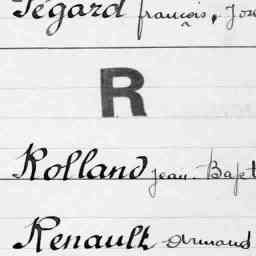 Tégard françois, Jose
R
Rolland Jean-Bapt
Renault Armand